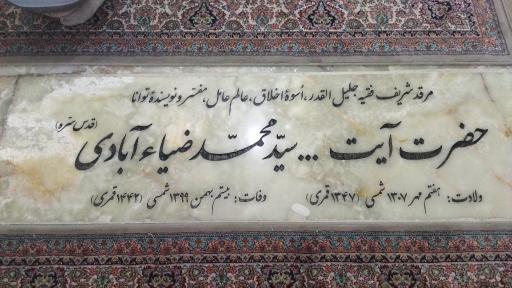 مرقد شریف فقیه جلیل القدر، اُسوۀ اخلاق، عالم عامل، مفسّر و نویسنده توانا
حضرت آیت ... سیّد محمّد ضیاء آبادی (قدّس سرّه)
ولادت: هفتم مهر ۱۳۰۷ شمسی (۱۳۴۷ قمری) وفات: بیستم بهمن ۱۳۹۹ شمسی (۱۴۴۲ قمری)